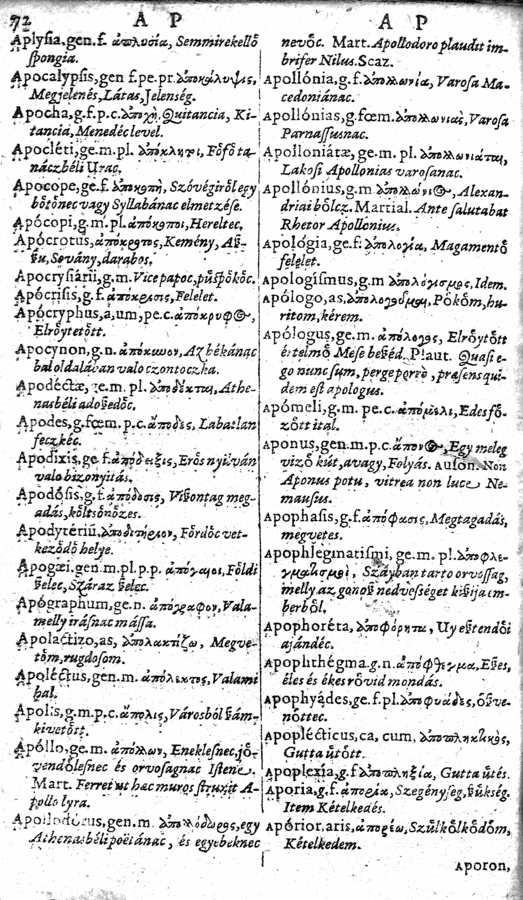 72 A P A P
Aplysia, gen. f. ἀπλυσία, Semmirekellő
spongia.
Apocalypsis, gen f. pe. pr. ἀποκάλυψις,
Megjelenés, Látas, Jelenség.
Apocha, g. f. p. c. ἀποχὴ, Quitancia, Ki-
tancia, Menedéclevel.
Apocléti, ge. m. pl. ἀπόκλητοι, Főfő ta-
náczbéli Urac.
Apocope, ge. f. ἀποκοπὴ, Szóvégiről egy
bőtőnec vagy Syllabánac elmetzése.
Apócopi, g. m. pl. ἀπόκοποι, Hereltec.
Apócrotus, ἀπόκροτος, Kemény, Aß-
ßu, Sovány, darabos.
Apocrysiárii, g. m. Vice papoc, püspőkőc.
Apócrisis, g. f. ἀπόκρισις, Felelet.
Apócryphus, a, um, pe. c. ἀπόκρυφος,
Elrőytetőtt.
Apocynon, g. n. ἀπόκυνον, Az békánac
bal oldalában valo czontoczka.
Apodéctæ, ge. m. pl. ἀποδέκται, Athe-
nasbéli adoßedőc.
Apodes, g. fœm. p. c. ἄποδες, Labatlan
feczkéc.
Apodixis, ge f. ἀπόδειξις, Erős nyilván
valo bizonyitás.
Apodósis, g. f. ἀπόδοσις, Vißontag meg-
adás, kőltsőnőzes.
Apodytériũ, ἀποδυτήριον, Főrdőc vet-
keződő helye.
Apogæi. gen. m. pl. p. p. ἀπόγαιοι, Főldi
ßelec, Száraz ßelec.
Apógraphum, ge. n. ἀπόγραφον, Vala-
melly irásnac mássa.
Apolactizo, as, ἀπολακτίζω, Megve-
tőm, rugdosom.
Apoléctus, gen. m. ἀπόλεκτος, Valami
hal.
Apolis, g. m. p. c. ἄπολις, Városból ßám-
kivetőtt.
Apóllo, ge. m. ἀπόλλων, Eneklesnec, jő-
vendőlesnec és orvosagnac Istene.
Mart. Ferret ut hac muros struxit A-
pollo lyra.
Apollodórus, gen. m. ἀπολλόδωρος, egy
Athenasbéli poëtánac, és egyebeknec
nevőc. Mart. Apollodoro plaudit im-
brifer Nilus. Scaz.
Apollónia, g. f. ἀπολλωνία, Varosa Ma-
cedoniánac.
Apollónias, g. fœm. ἀπολλωνιὰς, Varosa
Parnassusnac.
Apolloniátæ, ge. m. pl. ἀπολλωνιάται,
Lakosi Apollonias varosanac.
Apollónius, g. m ἀπολλώνιος, Alexan-
driai bőlcz. Martial. Ante salutabat
Rhetor Apollonius.
Apológia, ge. f. ἀπολογία, Magamentő
felelet.
Apologísmus, g. m ἀπολόγισμος, Idem.
Apólogo, as, ἀπολογοῦμαι, Pőkőm, hu-
ritom, kérem.
Apólogus, ge. m. ἀπόλογος, Elrőytőtt
értelmő Mese beßéd. Plaut. Quasi e-
go nunc sum, perge porrò, præsens qui-
dem est apologus.
Apómeli, g. m. pe. c. ἀπόμελι, Edes fő-
zőtt ital.
Aponus, gen. m. p. c. ἄπονος, Egy meleg
vizỏ kút, avagy, Folyás. Auson. Non
Aponus potu, vitrea non luce Ne-
mausus.
Apophasis, g. f. ἀπόφασις, Megtagadás,
megvetes.
Apophlegmatismi, ge. m. pl. ἀποφλε-
γματισμοὶ, Száyban tarto orvossag,
melly az gonoß nedvességet kißija em-
berből.
Apophoréta, ἀποφόρητα, Uy eßtendői
ajándéc.
Apophthégma. g. n. ἀπόφθεγμα, Eßes,
éles és ékes rővid mondás.
Apophyádes, ge. f. pl. ἀποφυάδες, őßve-
nőttec.
Apoplécticus, ca, cum, ἀποπληκτικὸς,
Gutta űtőtt.
Apoplexia, g. f ἀποπληξία, Gutta űtés.
Aporia, g. f. ἀπορία, Szegénység, ßűkség.
Item Kételkedés.
Apórior, aris, ἀπορέω, Szűlkőlkődőm,
Kételkedem.
Aporon,